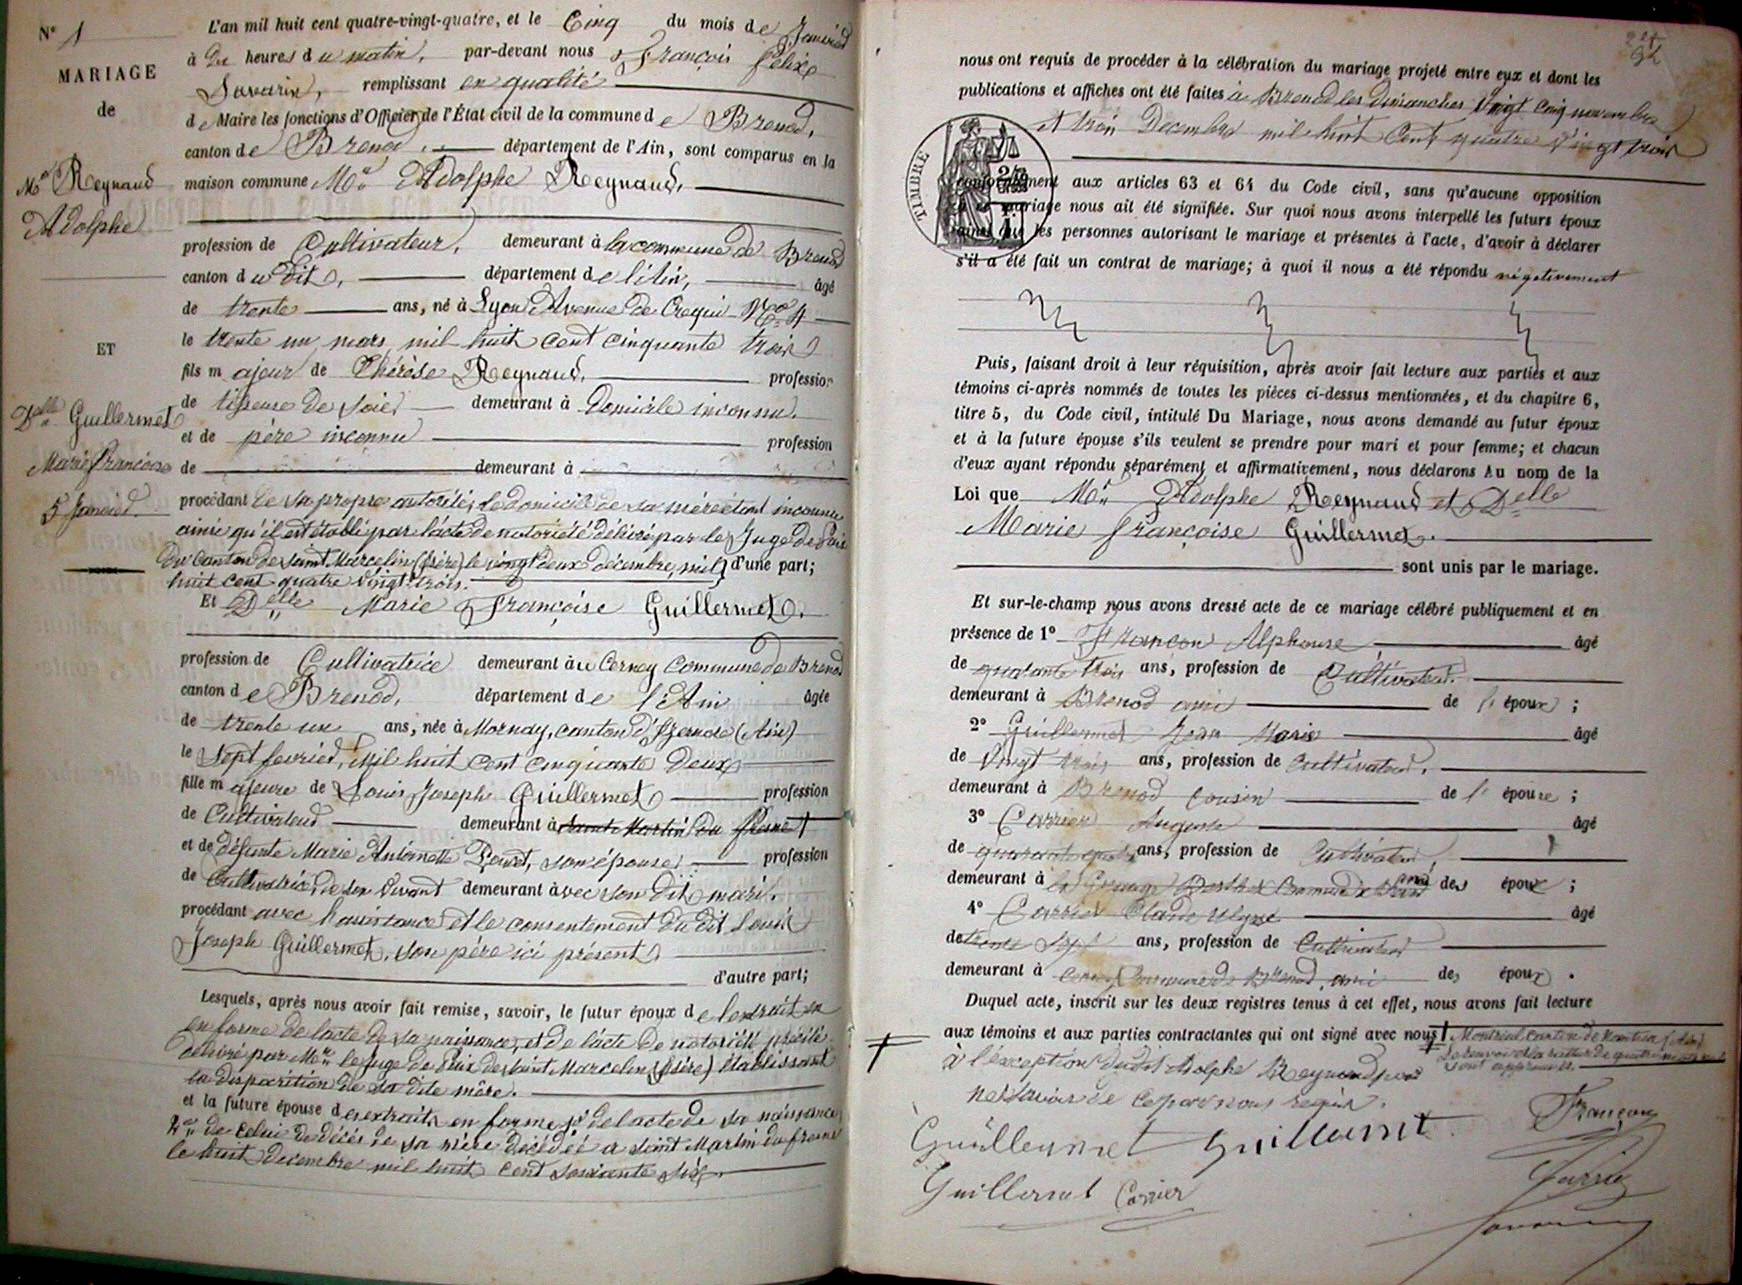 N° 1
MARIAGE
de
Mr Reynaud
Adolphe
ET
Delle Guillermet
Marie françoise
5 Janvier.
L'an mil huit cent quatre-vingt-quatre, et le Cinq du mois de Janvier
à Dix heures du matin, par-devant nous François félix
Savarin, remplissant en qualité
de Maire les fonctions d'Officier de l'État civil de la commune de Brenod,
canton de Brenod, département de l'Ain, sont comparus en la
maison commune Mr Adolphe Reynaud,
profession de Cultivateur, demeurant à la commune de Brenod
canton du dit, département de l'Ain, âgé
de trente ans, né à Lyon Avenue de Crequi No 4
le trente un mars mil huit cent cinquante trois
fils majeur de Thérèse Reynaud, profession
de tisseuse de soie, demeurant à domicile inconnu,
et de père inconnu profession
de demeurant à
procédant de sa propre autorité, le domicile de sa mère étant inconnu
ainsi qu'il est établi par l'acte de notoriété délivré par le Juge de Paix
du canton de Saint Marcelin (Isère) le vingt deux décembre, mil d'une part;
huit cent quatre vingt trois.
Et Delle Marie Françoise Guillermet.
profession de Cultivatrice demeurant au Cerney commune de Brenod
canton de Brenod, département de l'Ain âgée
de trente un ans, née à Mornay, canton d'Izernore (Ain)
le Sept fevrier, mil huit cent cinquante deux
fille majeure de Louis Joseph Guillermet, profession
de Cultivateur demeurant à Saint Martin du fresne
et de défunte Marie Antoinette son épouse, profession
de Cultivatrice, de son vivant demeurant avec son dit mari.
procédant avec l'assistance et le consentement du dit Louis
Joseph Guillermet, son père ici présent
d'autre part;
Lesquels, après nous avoir fait remise, savoir, le futur époux de l'extrait en
en forme de l'acte de sa naissance, et de l'acte de notoriété précité
délivré par Mr le Juge de Paix de Saint Marcelin (Isère) établissant
la disparition de sa dite mère.
et la future épouse des extraits en forme 1° de l'acte de sa naissance
2° de celui de décès de sa mère décédée à Saint Martin du fresne
le huit decembre mil huit cent soixante six.
92
nous ont requis de procéder à la célébration du mariage projeté entre eux et dont les
publications et affiches ont été faites à Brenod les dimanches vingt cinq novembre
et trois Decembre mil huit Cent quatre vingt trois
TIMBRE
conformément aux articles 63 et 64 du Code civil, sans qu'aucune opposition
à ce mariage nous ait été signifiée. Sur quoi nous avons interpellé les futurs époux
ainsi que les personnes autorisant le mariage et présentes à l'acte, d'avoir à déclarer
s'il a été fait un contrat de mariage; à quoi il nous a été répondu négativement
Puis, faisant droit à leur réquisition, après avoir fait lecture aux parties et aux
témoins ci-après nommés de toutes les pièces ci-dessus mentionnées, et du chapitre 6,
titre 5, du Code civil, intitulé Du Mariage, nous avons demandé au futur époux
et à la future épouse s'ils veulent se prendre pour mari et pour femme; et chacun
d'eux ayant répondu séparément et affirmativement, nous déclarons Au nom de la
Loi que Mr Adolphe Reynaud et Delle
Marie françoise Guillermet.
sont unis par le mariage.
Et sur-le-champ nous avons dressé acte de ce mariage célébré publiquement et en
présence de 1° Françon Alphonse âgé
de quarante trois ans, profession de Cultivateur.
demeurant à Brenod ami de l'époux;
2° Guillermet Jean Marie âgé
de Vingt trois ans, profession de Cultivateur.
demeurant à Brenod cousin de l'épouse;
3° Carrier Auguste âgé
de ans, profession de Cultivateur,
demeurant à la Grange des époux;
4° Carrier Claude Ulysse âgé
de trente sept ans, profession de Cultivateur
demeurant à Commune de Brenod, ami des époux.
Duquel acte, inscrit sur les deux registres tenus à cet effet, nous avons fait lecture
aux témoins et aux parties contractantes qui ont signé avec nous
à l'exception dudit Adolphe Reynaud pour
ne savoir de ce par nous requis.
Montréal canton de Nantua (Ain)
Guillermet Guillermet Françon
Guillermet Carrier Carrier
Savarin